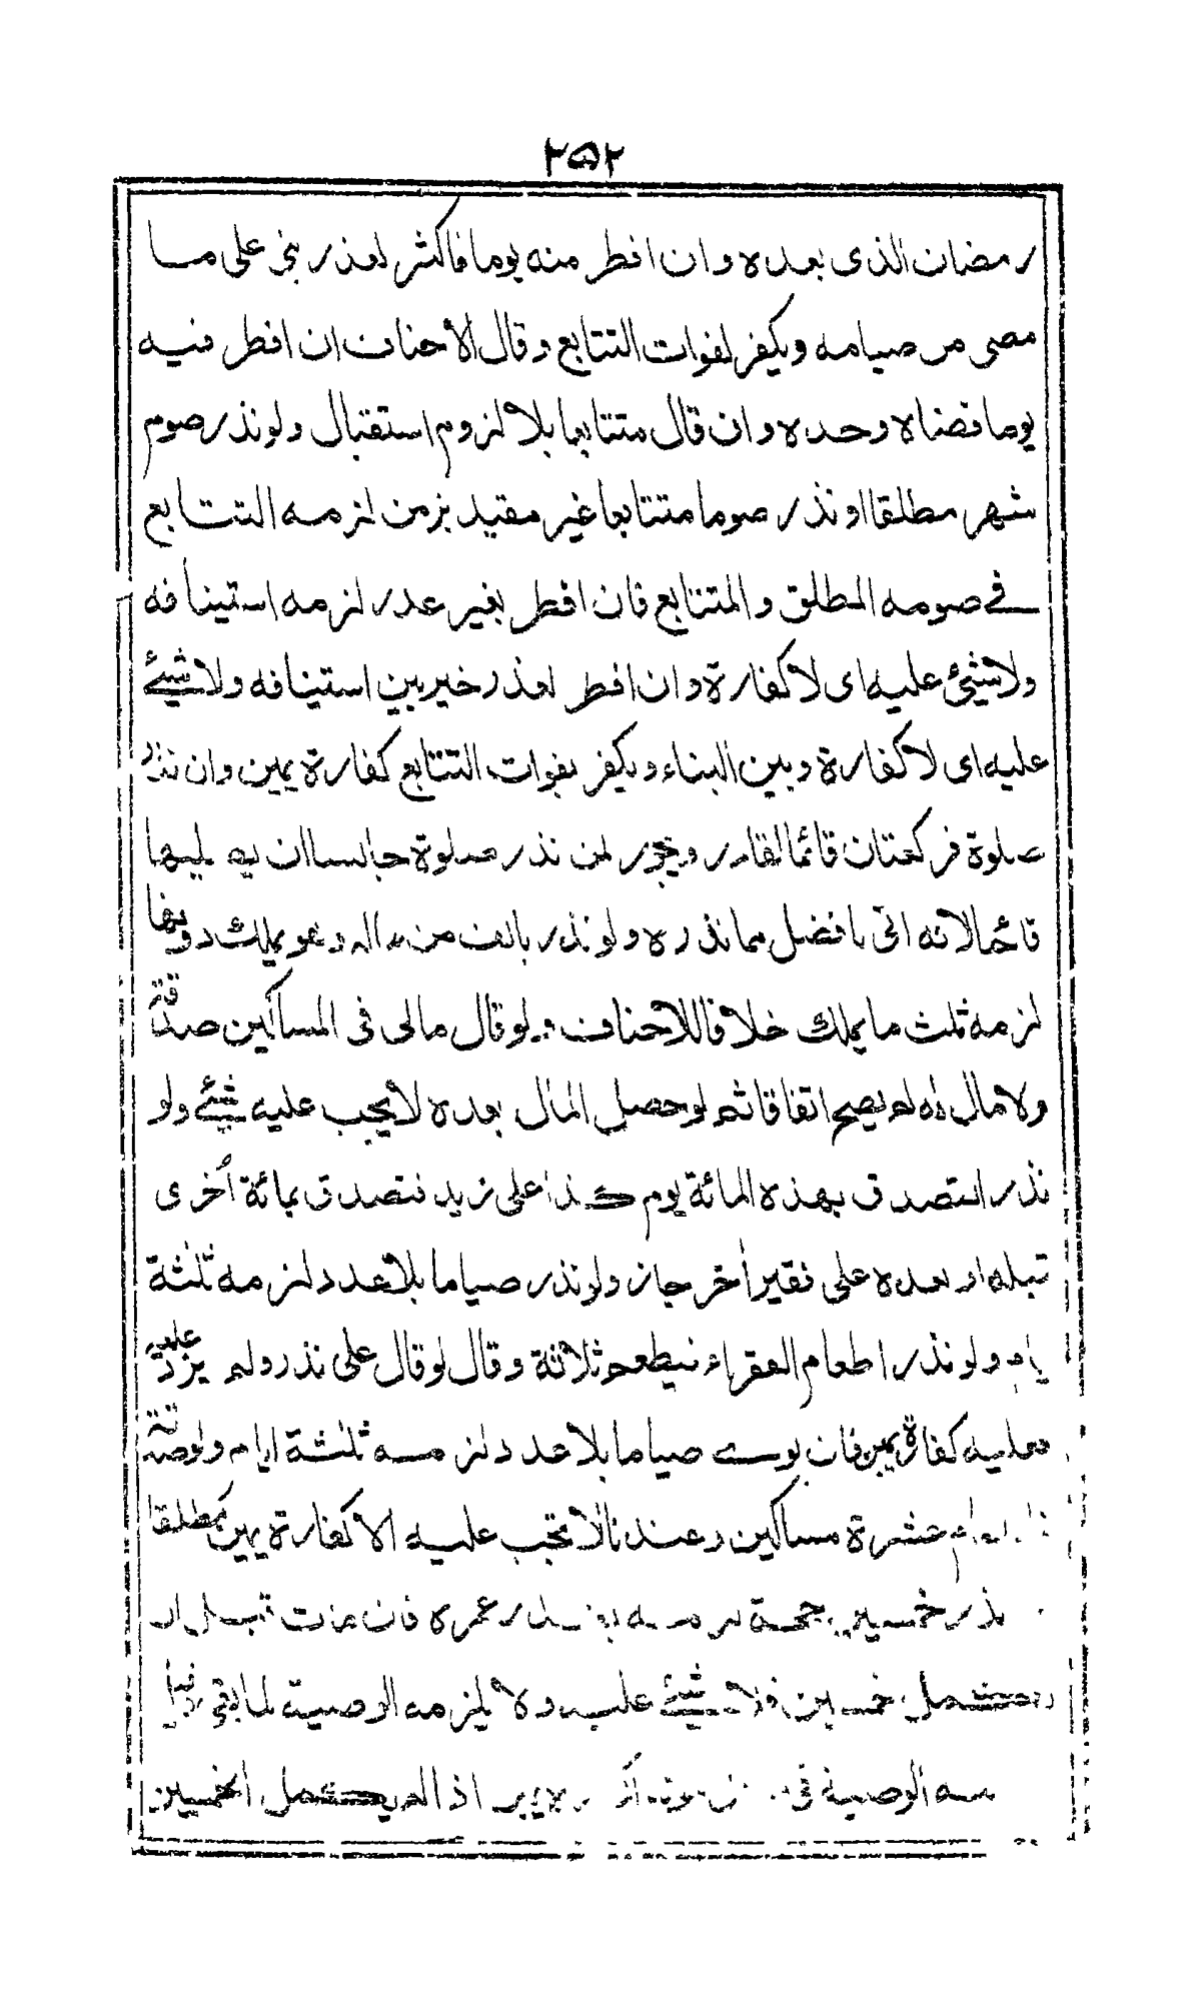 ۲۵۲
رمضان الذى بعده وان افطر منه يوما فاكثر لعذر بنى على ما
مضى من صيامه ويكفر لفوات التتابع وقال الأحناف ان افطر فيه
يوما قضاه وحده وان قال متتابعا بلا لزوم استقبال ولو نذر صوم
شهر مطلقا او نذر صوما متتابعا غير مقيد بزمن لزمه التتابع
فى صومه المطلق والمتتابع فان افطر بغير عذر لزمه استينافه
ولا شيئ عليه اى لا كفارة وان افطر لعذر خير بين استينافه ولا شيئ
عليه اى لا كفارة وبين البناء ويكفر بفوات التتابع كفارة يمين وان نذر
صلوة فركعتان قائما لقادر ويجوز لمن نذر صلوة جالسا ان يصليها
قائما لانه اتى بافضل مما نذره ولو نذر بالف من ماله وهو يملك دونها
لزمه ثلث ما يملك خلافا للاحناف ولو قال مالى فى المساكين صدقة
ولا مال له لم يصح اتفاقا ثم لو حصل المال بعده لا يجب عليه شيئ ولو
نذر التصدق بهذه المائة يوم كذا على زيد فتصدق بمائة أخرى
قبله او بعده على فقير أخر جاز ولو نذر صياما بلا عدد لزمه ثلثة
ايام ولو نذر اطعام الفقراء فيطعم ثلاثة وقال لو قال على نذر ولم يزد عليه
فعليه كفارة يمين فان نوى صياما بلا عدد لزمه ثلثة ايام ولو صدقة
عشرة مساكين وعندنا لا تجب عليه الا كفارة يمين مطلقا
نذر خمسين حجة لزمه عمره فان مات قبل ان
يستكمل خمسين فلا شيئ عليه ولا يلزمه الوصية لما بقى
الوصية اذا لم يستكمل الخمسين